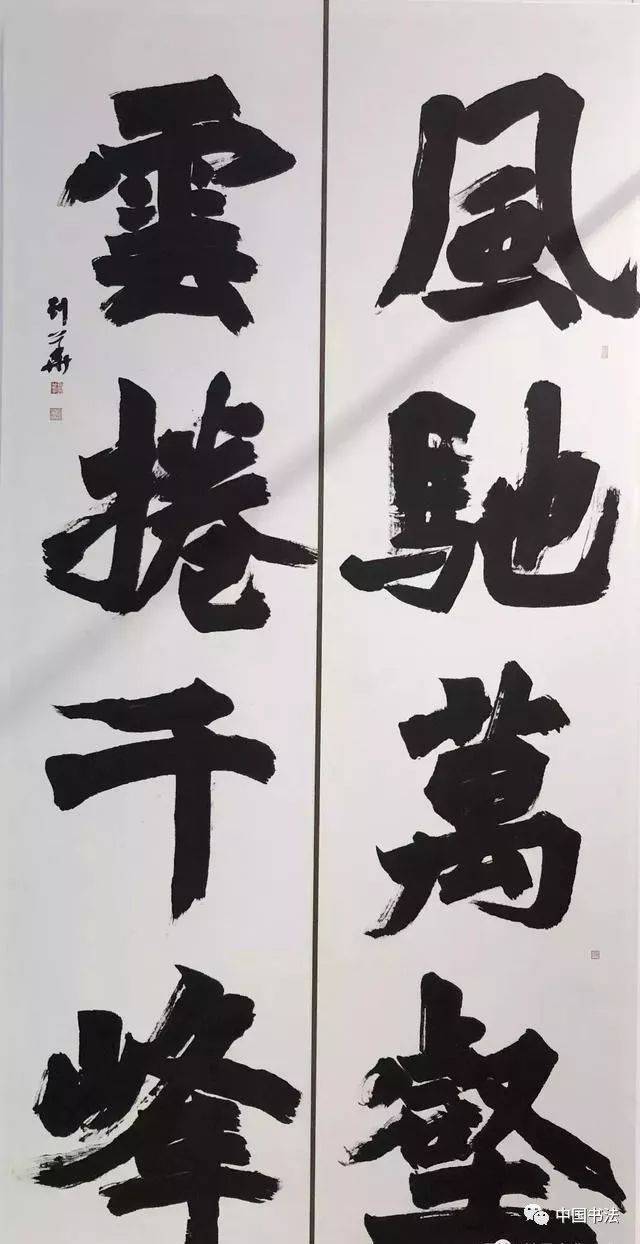 風馳萬壑
雲捲千峰
中国书法